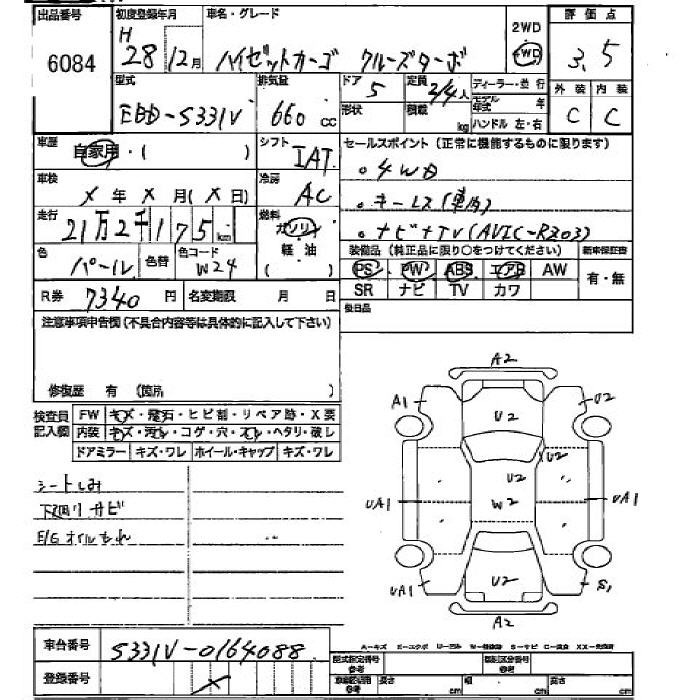 出品番号 初度登録年月 車名・グレード 2WD 評価点
6084 H 28年 12月 ハイゼットカーゴ クルーズターボ 4WD 3.5
型式 排気量 ドア 定員 ディーラー・並行 外装 内装
EBD-S331V 660 cc 5 2/4人 モデル年式 年 C C
形状 積載 kg ハンドル 左・右
車歴 自家用・( ) シフト IAT セールスポイント(正常に機能するものに限ります)
。4WD
車検 X年 X月(X日) 冷房 AC
。キーレス(車内)
走行 21万2千175km 燃料 ガソリン
軽油
( )
。ナビナTV(AVIC-RZ03)
色 パール 色替 色コード W24
装備品(純正品に限り〇をつけてください) 新車保証書
PS PW ABS エアB AW 有・無
SR ナビ TV カワ
R券 7340円 名変期限 月 日
後日品
注意事項申告欄(不具合内容等は具体的に記入して下さい)
修復歴 有 (箇所 )
検査員記入欄 FW キズ・飛石・ヒビ割・リペア跡・X要
内装 キズ・汚レ・コゲ・穴・スレ・ヘタリ・破レ
ドアミラー キズ・ワレ ホイール・キャップ キズ・ワレ
シートしみ
下廻りサビ
E/Gオイルもれ
A2
A1 U2 U2
U2
U2
UA1 W2 UA1
UA1 U2 S1
A2
車台番号 S331V-0164088
登録番号
A-キズ E-エクボ U-凹ミ W-補修跡 S-サビ C-腐食 XX-交換済
型式指定番号 参考 類別区分番号 参考
長さ cm 幅 cm 高さ cm